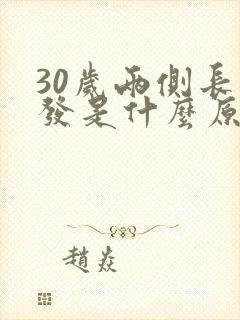 30歲兩側長
發是什麼原
趙焱